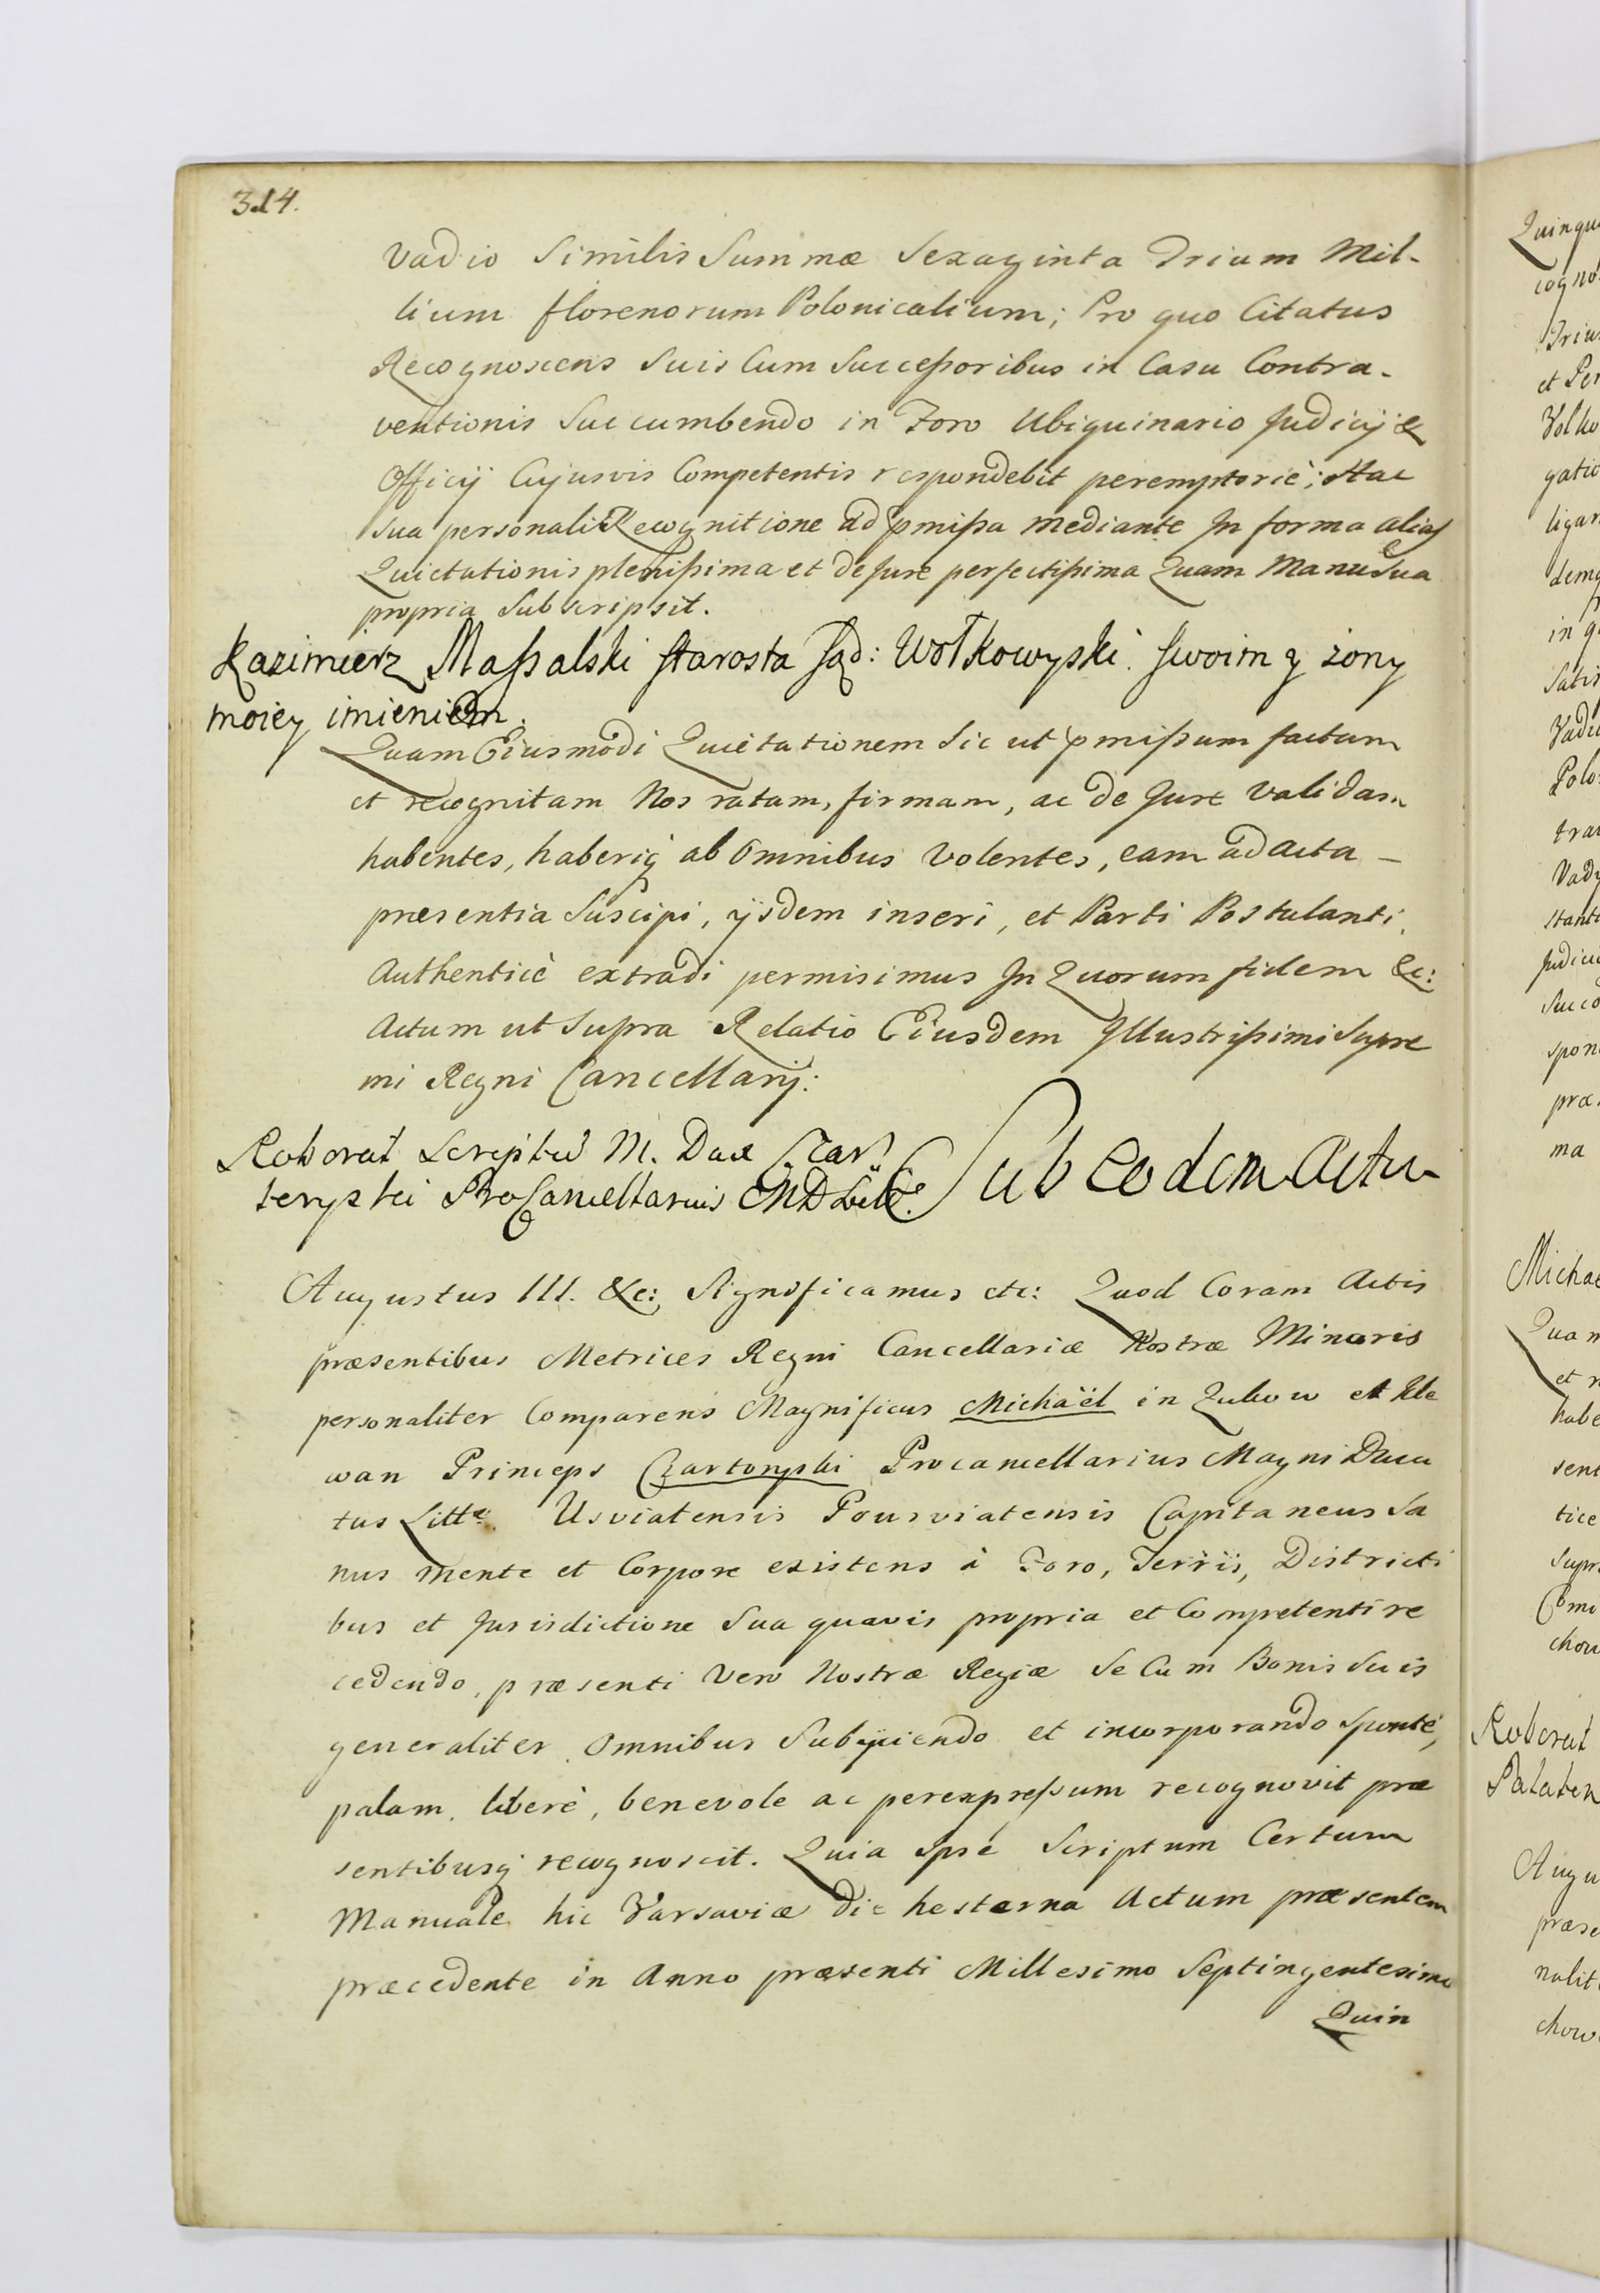 314.
Vadio Similis Summæ Sexaginta Trium Mil-
lium florenorum Polonicalium; Pro quo Citatus
Recognoscens Suis Cum Succeßoribus in Casu Contra-
ventionis Succumbendo in Foro Ubiquinario Judicij &
Officij Cujusvis Competentis respondebit peremptoriè; Hac
sua personali Recognitione ad pmißa mediante In forma alias
Quietationis plenißima et de Jure perfectißima Quam Manu Sua
propria Subscripsit.
Kazimierz Maßalski starosta sąd: Wołkowyski. swoim y żony
moiey imieniem.
Quam Eiusmodi Quietationem Sic ut pmißum factam
et recognitam Nos ratam, firmam, ac de Jure Validam
habentes, haberiq ab Omnibus Volentes, eam ad acta –
præsentia Suscipi, ijsdem inseri, et Parti Postulanti,
Authenticè extradi permisimus In Quorum fidem &c:
Actum ut Supra Relatio Eiusdem Illustrißimi Supre
mi Regni Cancellarij:
Roborat Scriptū M. Dux Czar
toryski ProCancellarius MDLitt.
Sub eodem Actu
Augustus III. &c: Significamus etc: Quod Coram Actis
præsentibus Metrices Regni Cancellariæ Nostræ Minoris
personaliter Comparens Magnificus Michaël in Zukow et Kle
wan Princeps Czartoryski Procancellarius Magni Ducu
tus Litt. Usviatensis Pousviatensis Capitaneus Sa
nus mente et Corpore existens à Foro, Terrïs, Districti
bus et Jurisdictione Sua quavis propria et Competenti re
cedendo, præsenti Vero Nostræ Regiæ Se Cum Bonis Suis
generaliter Omnibus Subijciendo et incorporando sponté,
palam, liberè, benevole ac perexpreßum recognovit præ
sentibusq recognoscit. Quia ipse Scriptum Certum
Manuale hic Varsaviæ die hesterna Actum præsentem
præcedente in Anno præsenti Millesimo Septingentesimo
Quin